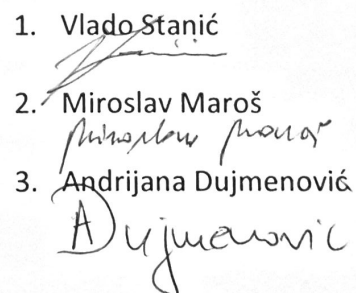 1. Vlado Stanić
2. Miroslav Maroš
Miroslav Maroš
3. Andrijana Dujmenović
A Dujmenovic